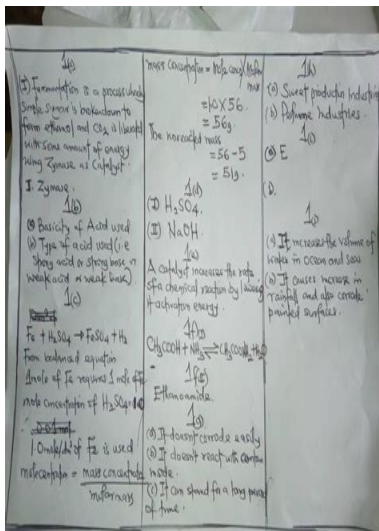 1(a)
(I) Fermentation is a process whereby
simple sugar is breakdown to
form ethanol and CO2 is liberated
with some amount of energy
using Zymase as Catalyst.
I. Zymase.
1(b)
(a) Basicity of Acid used
(b) Type of acid used (i.e
strong acid or strong base,
weak acid or weak base)
1(c)
Fe + H2SO4 → FeSO4 + H2
from balanced equation
1mole of Fe requires 1 mole of
mole concentration of H2SO4=
1.0mole/dm3 of Fe is used
mole concentration = mass concentration
molar mass
mass concentration = mole conc ×
mass
= × 56
= 56g.
The unreacted mass
= 56 - 5
= 51g.
1(d)
(I) H2SO4.
(II) NaOH.
1(e)
A catalyst increases the rate
of a chemical reaction by
it activation energy.
1f(I)
CH3COOH + NH3 ⇌
1f(II)
Ethanoamide.
1(g)
(a) It doesn't corrode easily
(b) It doesn't react with
(c) It can stand for a long period
of time.
1(h)
(a) Sweet production Industries
(b) Perfume Industries.
1(i)
E
1(j)
(a) It increases the volume of
water in ocean and seas
(b) It causes increase in
rainfall and also corrode
painted surfaces.